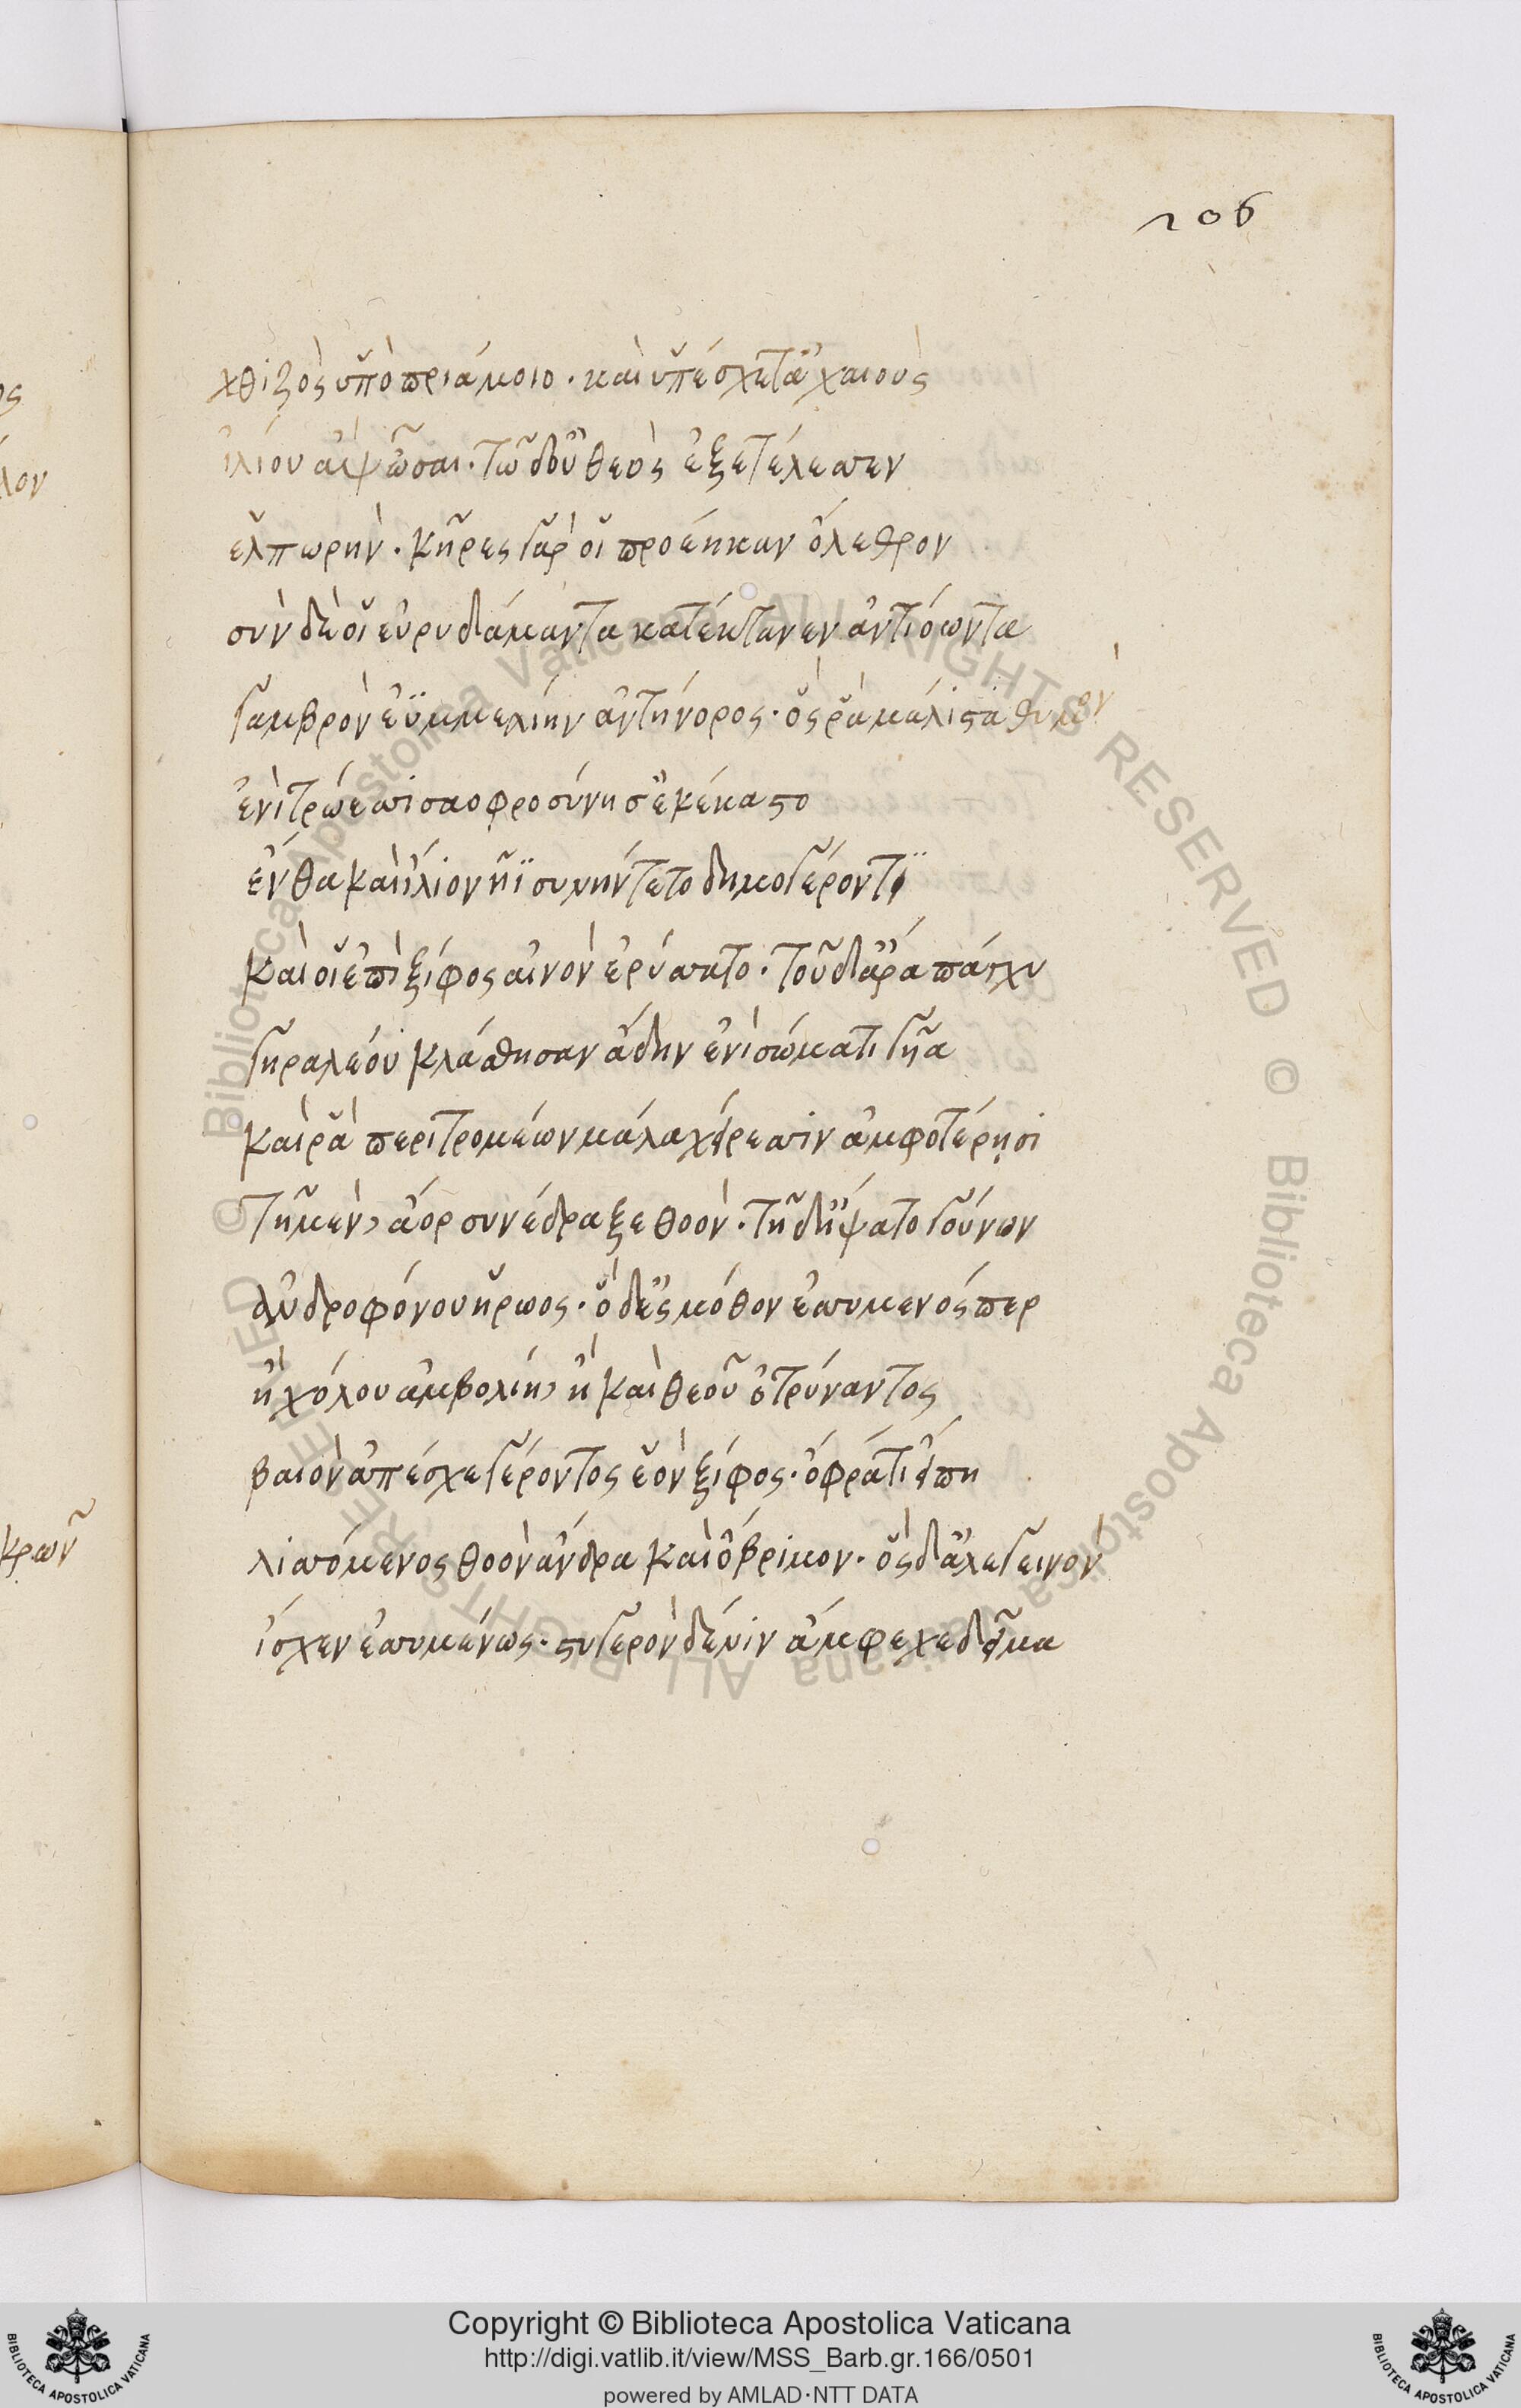 206
χθιζὸς ὑπὸ πριάμοιο. καὶ ὑπέσχετ' ἀχαιοὺς
ἰλίου ἂψ ὦσαι. τῶ δ' οὐ θεὸς ἐξετέλεσσεν
ἐλπωρήν. κῆρες γάρ οἱ προέηκαν ὄλεθρον
σὺν δέ οἱ εὐρυδάμαντα κατέκτανεν ἀντιόωντα
γαμβρὸν ἐϋμμελίην ἀντήνορος. ὅς ῥα μάλιστα θυμὸν
ἐνὶ τρώεσσι σαοφροσύνησ' ἐκέκαστο
ἔνθα καὶ ἰλιονῆϊ συνήντετο δημογέροντι
καί οἱ ἐπὶ ξίφος αἰνὸν ἐρύσσατο. τοῦ δ' ἄρα πάγχυ
γηραλέου κλάσθησαν ἄδην ἐνὶ σώματι γυῖα
καί ῥα περιτρομέων μάλα χείρεσσιν ἀμφοτέρησι
τῆ μὲν, ἄορ συνέδραξε θοόν. τῆ δ' ἥψατο γούνων
ἀνδροφόνου ἥρωος. ὁ δ' ἐς μόθον ἐσσύμενός περ
ἢ χόλου ἀμβολίη, ἢ καὶ θεοῦ ὀτρύναντος
βαιὸν ἀπέσχε γέροντος ἑὸν ξίφος. ὄφρά τι εἴπη
λισσόμενος θοὸν ἄνδρα καὶ ὄβριμον. ὃς δ' ἀλεγεινὸν
ἴσχεν ἐσσυμένως. στυγερὸν δέ μιν ἄμφεχε δεῖμα
κρων
λον
ος
Copyright © Biblioteca Apostolica Vaticana
http://digi.vatlib.it/view/MSS_Barb.gr.166/0501
powered by AMLAD·NTT DATA
BIBLIOTECA APOSTOLICA VATICANA
BIBLIOTECA APOSTOLICA VATICANA
© Biblioteca Apostolica Vaticana ALL RIGHTS RESERVED © Biblioteca Apostolica Vaticana ALL RIGHTS RESERVED